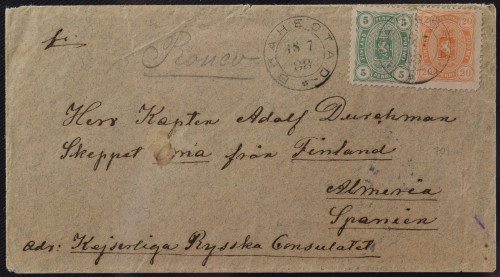 BRAHESTAD
18 7
88
5 5
20 20
Herr Kapten Adolf Durchman
Skeppet Oma från Finland
Almeria
Spanien
adr: Kejserliga Rysska Consulatet